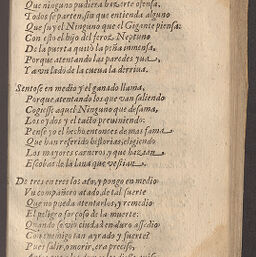 Que ninguno pudiera hazerte ofensa,
Todos se parten, sin que entienda alguno
Que fuy el Ninguno que el Gigante piensa:
Con esto el hijo del feroz Neptuno
De la puerta quitò la peña inmensa,
Porque atentando las paredes yua
Y a vn lado de la cueua la derriua.
Sentose en medio y el ganado llama,
Porque atentando los que van saliendo
Cogiesse aquel Ninguno que desama,
Los ojos y el tacto preuiniendo:
Pense yo el hecho entonces de mas fama
Que han referido historias, eligiendo
Los mayores carneros, y que hazian
Escobas de la lana que vestian
De tres en tres los ato, y pongo en medio
Vn compañero atado, de tal suerte
Que no pueda atentarlos, y remedio
El peligro forçoso de la muerte:
Quando se vio ciudad en duro assedio
Con enemigo tan ayrado y fuerte?
Pues salir, o morir, era preciso,